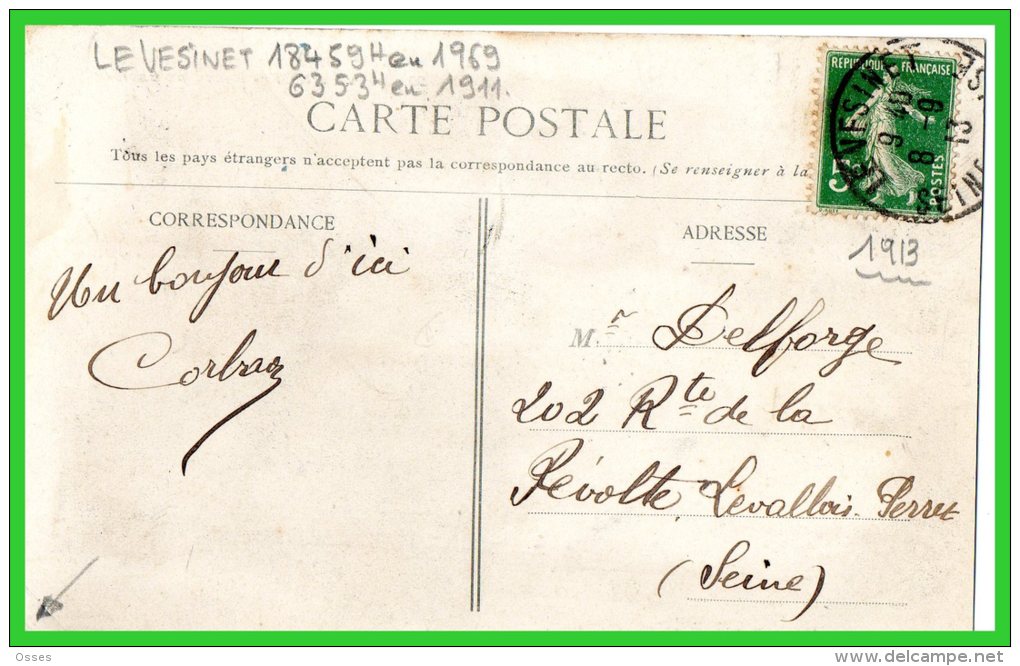 LE VESINET 18459 H en 1969
6353 H en 1911.
CARTE POSTALE
Tous les pays étrangers n'acceptent pas la correspondance au recto. (Se renseigner à la
REPUBLIQUE FRANÇAISE
5
POSTES
LE VESINET
9 40
8 - 9
13
CORRESPONDANCE
ADRESSE
1913
Un bonjour d'ici
Mr Delforge
202 Rte de la
Révolte Levallois-Perret
(Seine)
Osses
www.delcampe.net